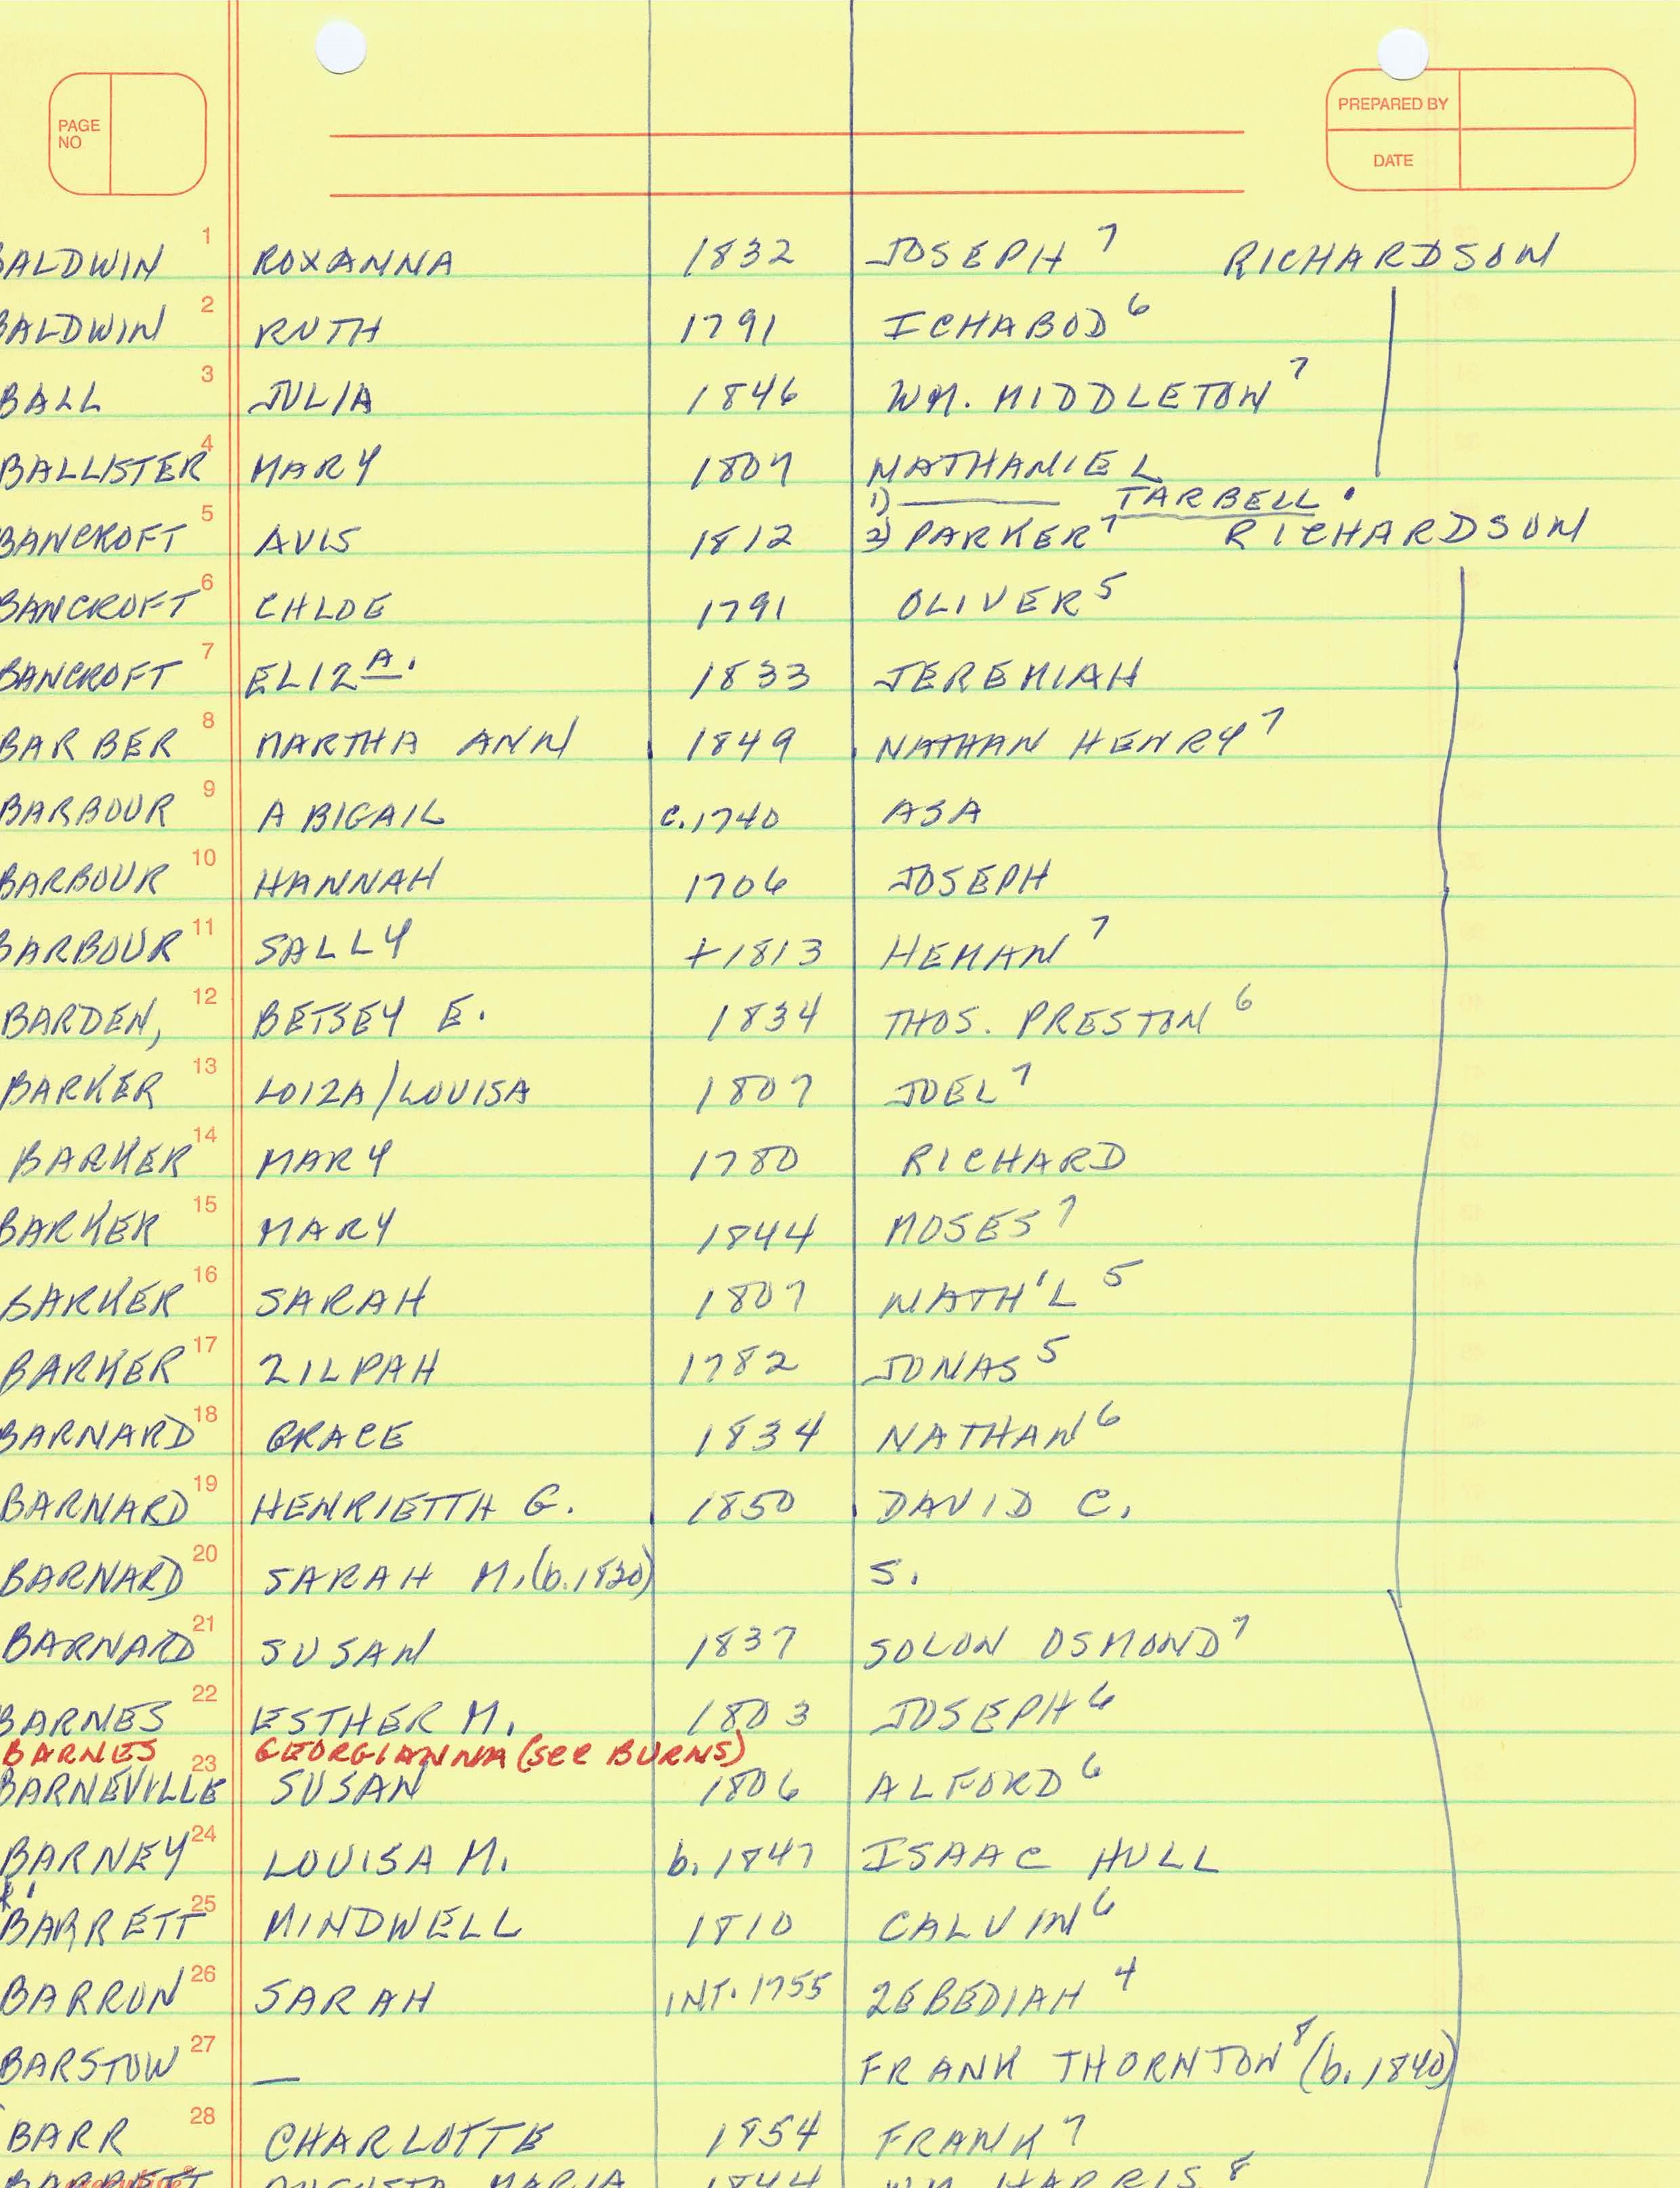 PAGE NO
PREPARED BY
DATE
1 BALDWIN ROXANNA 1832 JOSEPH 7 RICHARDSON
2 BALDWIN RUTH 1791 ICHABOD 6
3 BALL JULIA 1846 WM. MIDDLETON 7
4 BALLISTER MARY 1807 NATHANIEL
1) —— TARBELL
5 BANCROFT AVIS 1812 2) PARKER 7 RICHARDSON
6 BANCROFT CHLOE 1791 OLIVER 5
7 BANCROFT ELIZA. 1833 JEREMIAH
8 BARBER MARTHA ANN 1849 NATHAN HENRY 7
9 BARBOUR ABIGAIL c.1740 ASA
10 BARBOUR HANNAH 1706 JOSEPH
11 BARBOUR SALLY +1813 HEMAN 7
12 BARDEN, BETSEY E. 1834 THOS. PRESTON 6
13 BARKER LOIZA/LOUISA 1807 JOEL 7
14 BARKER MARY 1780 RICHARD
15 BARKER MARY 1844 MOSES 7
16 BARKER SARAH 1807 NATH'L 5
17 BARKER ZILPAH 1782 JONAS 5
18 BARNARD GRACE 1834 NATHAN 6
19 BARNARD HENRIETTA G. 1850 DAVID C.
20 BARNARD SARAH M. (b.1830) S.
21 BARNARD SUSAN 1837 SOLON OSMOND 7
22 BARNES ESTHER M. 1803 JOSEPH 6
BARNES GEORGIANNA (see BURNS)
23 BARNEVILLE SUSAN 1806 ALFORD 6
24 BARNEY LOUISA M. b.1847 ISAAC HULL
25 BARRETT MINDWELL 1810 CALVIN 6
26 BARRON SARAH INT. 1755 ZEBEDIAH 4
27 BARSTOW — FRANK THORNTON 8 (b. 1840)
28 BARR CHARLOTTE 1854 FRANK 7
BARRETT AUGUSTA MARIA 1844 WM. HARRIS 8